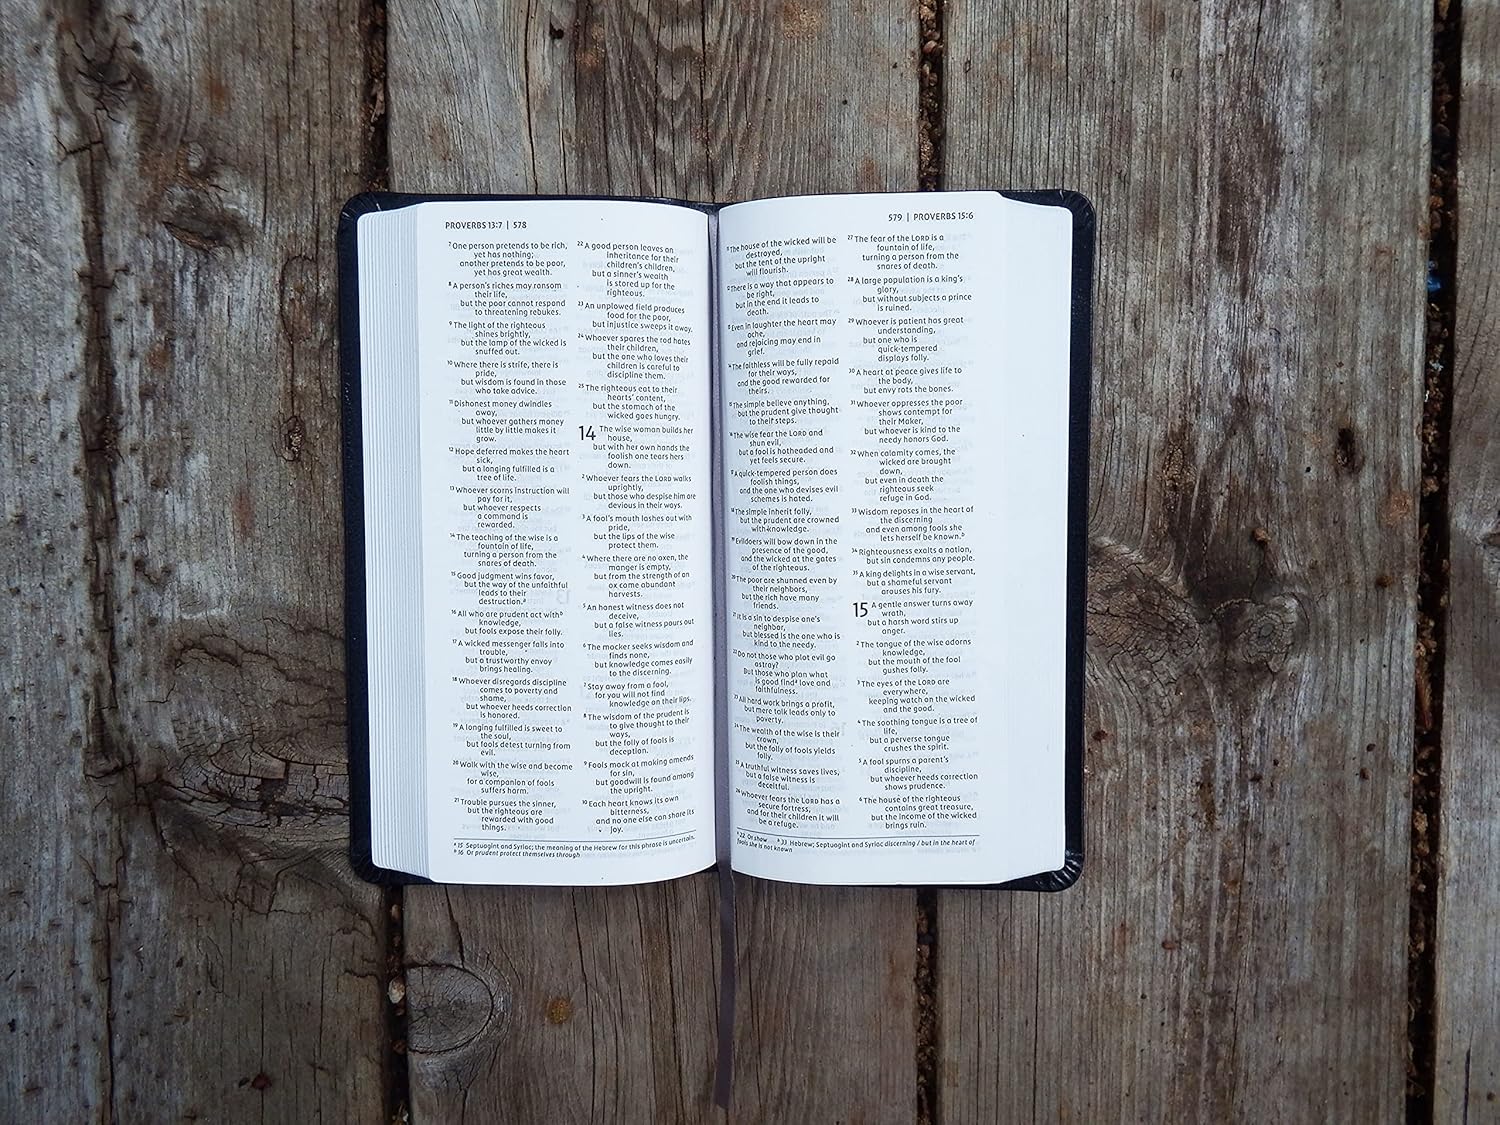 PROVERBS 13:7 | 578
7 One person pretends to be rich,
yet has nothing;
another pretends to be poor,
yet has great wealth.
8 A person's riches may ransom
their life,
but the poor cannot respond
to threatening rebukes.
9 The light of the righteous
shines brightly,
but the lamp of the wicked is
snuffed out.
10 Where there is strife, there is
pride,
but wisdom is found in those
who take advice.
11 Dishonest money dwindles
away,
but whoever gathers money
little by little makes it
grow.
12 Hope deferred makes the heart
sick,
but a longing fulfilled is a
tree of life.
13 Whoever scorns instruction will
pay for it,
but whoever respects
a command is
rewarded.
14 The teaching of the wise is a
fountain of life,
turning a person from the
snares of death.
15 Good judgment wins favor,
but the way of the unfaithful
leads to their
destruction.a
16 All who are prudent act with b
knowledge,
but fools expose their folly.
17 A wicked messenger falls into
trouble,
but a trustworthy envoy
brings healing.
18 Whoever disregards discipline
comes to poverty and
shame,
but whoever heeds correction
is honored.
19 A longing fulfilled is sweet to
the soul,
but fools detest turning from
evil.
20 Walk with the wise and become
wise,
for a companion of fools
suffers harm.
21 Trouble pursues the sinner,
but the righteous are
rewarded with good
things.
22 A good person leaves an
inheritance for their
children's children,
but a sinner's wealth
is stored up for the
righteous.
23 An unplowed field produces
food for the poor,
but injustice sweeps it away.
24 Whoever spares the rod hates
their children,
but the one who loves their
children is careful to
discipline them.
25 The righteous eat to their
hearts' content,
but the stomach of the
wicked goes hungry.
14 The wise woman builds her
house,
but with her own hands the
foolish one tears hers
down.
2 Whoever fears the LORD walks
uprightly,
but those who despise him are
devious in their ways.
3 A fool's mouth lashes out with
pride,
but the lips of the wise
protect them.
4 Where there are no oxen, the
manger is empty,
but from the strength of an
ox come abundant
harvests.
5 An honest witness does not
deceive,
but a false witness pours out
lies.
6 The mocker seeks wisdom and
finds none,
but knowledge comes easily
to the discerning.
7 Stay away from a fool,
for you will not find
knowledge on their lips.
8 The wisdom of the prudent is
to give thought to their
ways,
but the folly of fools is
deception.
9 Fools mock at making amends
for sin,
but goodwill is found among
the upright.
10 Each heart knows its own
bitterness,
and no one else can share its
joy.
a 15 Septuagint and Syriac; the meaning of the Hebrew for this phrase is uncertain.
b 16 Or prudent protect themselves through
579 | PROVERBS 15:6
11 The house of the wicked will be
destroyed,
but the tent of the upright
will flourish.
12 There is a way that appears to
be right,
but in the end it leads to
death.
13 Even in laughter the heart may
ache,
and rejoicing may end in
grief.
14 The faithless will be fully repaid
for their ways,
and the good rewarded for
theirs.
15 The simple believe anything,
but the prudent give thought
to their steps.
16 The wise fear the LORD and
shun evil,
but a fool is hotheaded and
yet feels secure.
17 A quick-tempered person does
foolish things,
and the one who devises evil
schemes is hated.
18 The simple inherit folly,
but the prudent are crowned
with knowledge.
19 Evildoers will bow down in the
presence of the good,
and the wicked at the gates
of the righteous.
20 The poor are shunned even by
their neighbors,
but the rich have many
friends.
21 It is a sin to despise one's
neighbor,
but blessed is the one who is
kind to the needy.
22 Do not those who plot evil go
astray?
But those who plan what
is good find a love and
faithfulness.
23 All hard work brings a profit,
but mere talk leads only to
poverty.
24 The wealth of the wise is their
crown,
but the folly of fools yields
folly.
25 A truthful witness saves lives,
but a false witness is
deceitful.
26 Whoever fears the LORD has a
secure fortress,
and for their children it will
be a refuge.
27 The fear of the LORD is a
fountain of life,
turning a person from the
snares of death.
28 A large population is a king's
glory,
but without subjects a prince
is ruined.
29 Whoever is patient has great
understanding,
but one who is
quick-tempered
displays folly.
30 A heart at peace gives life to
the body,
but envy rots the bones.
31 Whoever oppresses the poor
shows contempt for
their Maker,
but whoever is kind to the
needy honors God.
32 When calamity comes, the
wicked are brought
down,
but even in death the
righteous seek
refuge in God.
33 Wisdom reposes in the heart of
the discerning
and even among fools she
lets herself be known.b
34 Righteousness exalts a nation,
but sin condemns any people.
35 A king delights in a wise servant,
but a shameful servant
arouses his fury.
15 A gentle answer turns away
wrath,
but a harsh word stirs up
anger.
2 The tongue of the wise adorns
knowledge,
but the mouth of the fool
gushes folly.
3 The eyes of the LORD are
everywhere,
keeping watch on the wicked
and the good.
4 The soothing tongue is a tree of
life,
but a perverse tongue
crushes the spirit.
5 A fool spurns a parent's
discipline,
but whoever heeds correction
shows prudence.
6 The house of the righteous
contains great treasure,
but the income of the wicked
brings ruin.
a 22 Or show b 33 Hebrew; Septuagint and Syriac discerning / but in the heart of
fools she is not known